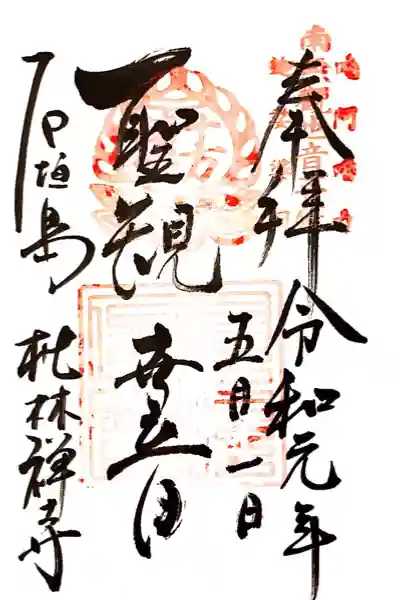 奉拝 令和元年
五月一日
聖観世音
石垣島 桃林禅寺